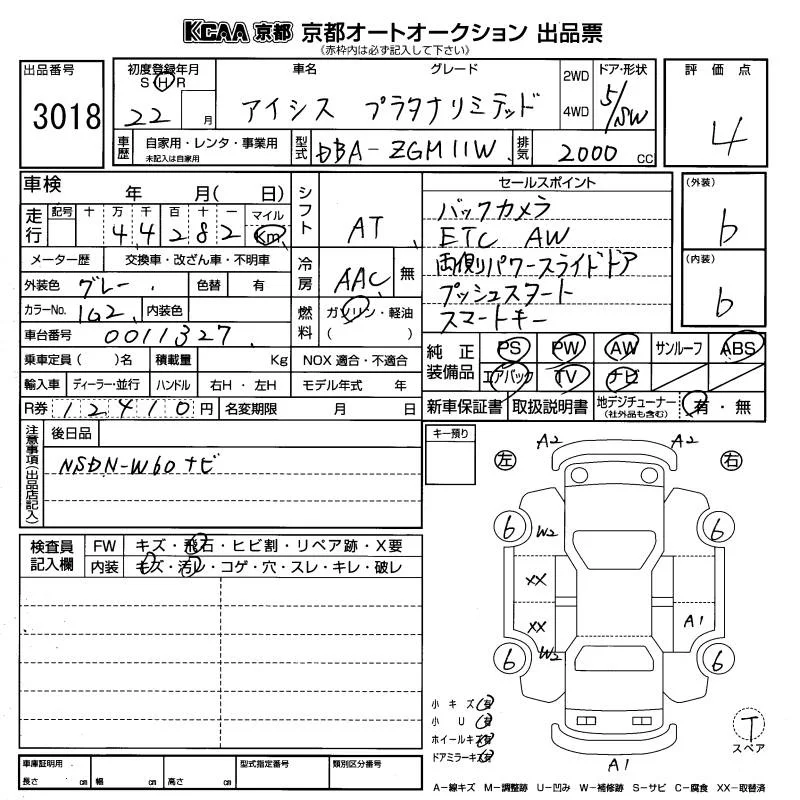 KCAA 京都 京都オートオークション 出品票
(赤枠内は必ず記入して下さい)
出品番号
3018
初度登録年月
S H R
22 月
車名 グレード
アイシス プラタナリミテッド
2WD
4WD
ドア・形状
5/SW
評価点
4
車歴
自家用・レンタ・事業用
未記入は自家用
型式
DBA-ZGM11W
排気
2000 CC
車検 年 月( 日)
走行
記号 十 万 千 百 十 一 マイル
4 4 2 8 2 Km
メーター歴 交換車・改ざん車・不明車
外装色 グレー 色替 有
カラーNo. 1G2 内装色
車台番号 0011327
シフト
AT
冷房
AAC 無
燃料
ガソリン・軽油
( )
セールスポイント
バックカメラ
ETC AW
両側パワースライドドア
プッシュスタート
スマートキー
(外装)
6
(内装)
6
純正装備品
PS PW AW サンルーフ ABS
エアバック TV ナビ
乗車定員( )名 積載量 Kg NOX 適合・不適合
輸入車 ディーラー・並行 ハンドル 右H・左H モデル年式 年
R券 12410円 名変期限 月 日
新車保証書 取扱説明書 地デジチューナー
(社外品も含む)
有・無
注意事項(出品店記入)
後日品
NSDN-W60 ナビ
キー預り
検査員記入欄
FW キズ・飛石・ヒビ割・リペア跡・X要
内装 キズ・汚レ・コゲ・穴・スレ・キレ・破レ
左
右
A2
A2
6
6
W2
XX
XX
A1
W2
6
6
A1
小キズ 有
小U 有
ホイールキズ 有
ドアミラーキズ 有
T
スペア
車庫証明用
長さ cm 幅 cm 高さ cm
型式指定番号
類別区分番号
A−線キズ M−調整跡 U−凹み W−補修跡 S−サビ C−腐食 XX−取替済